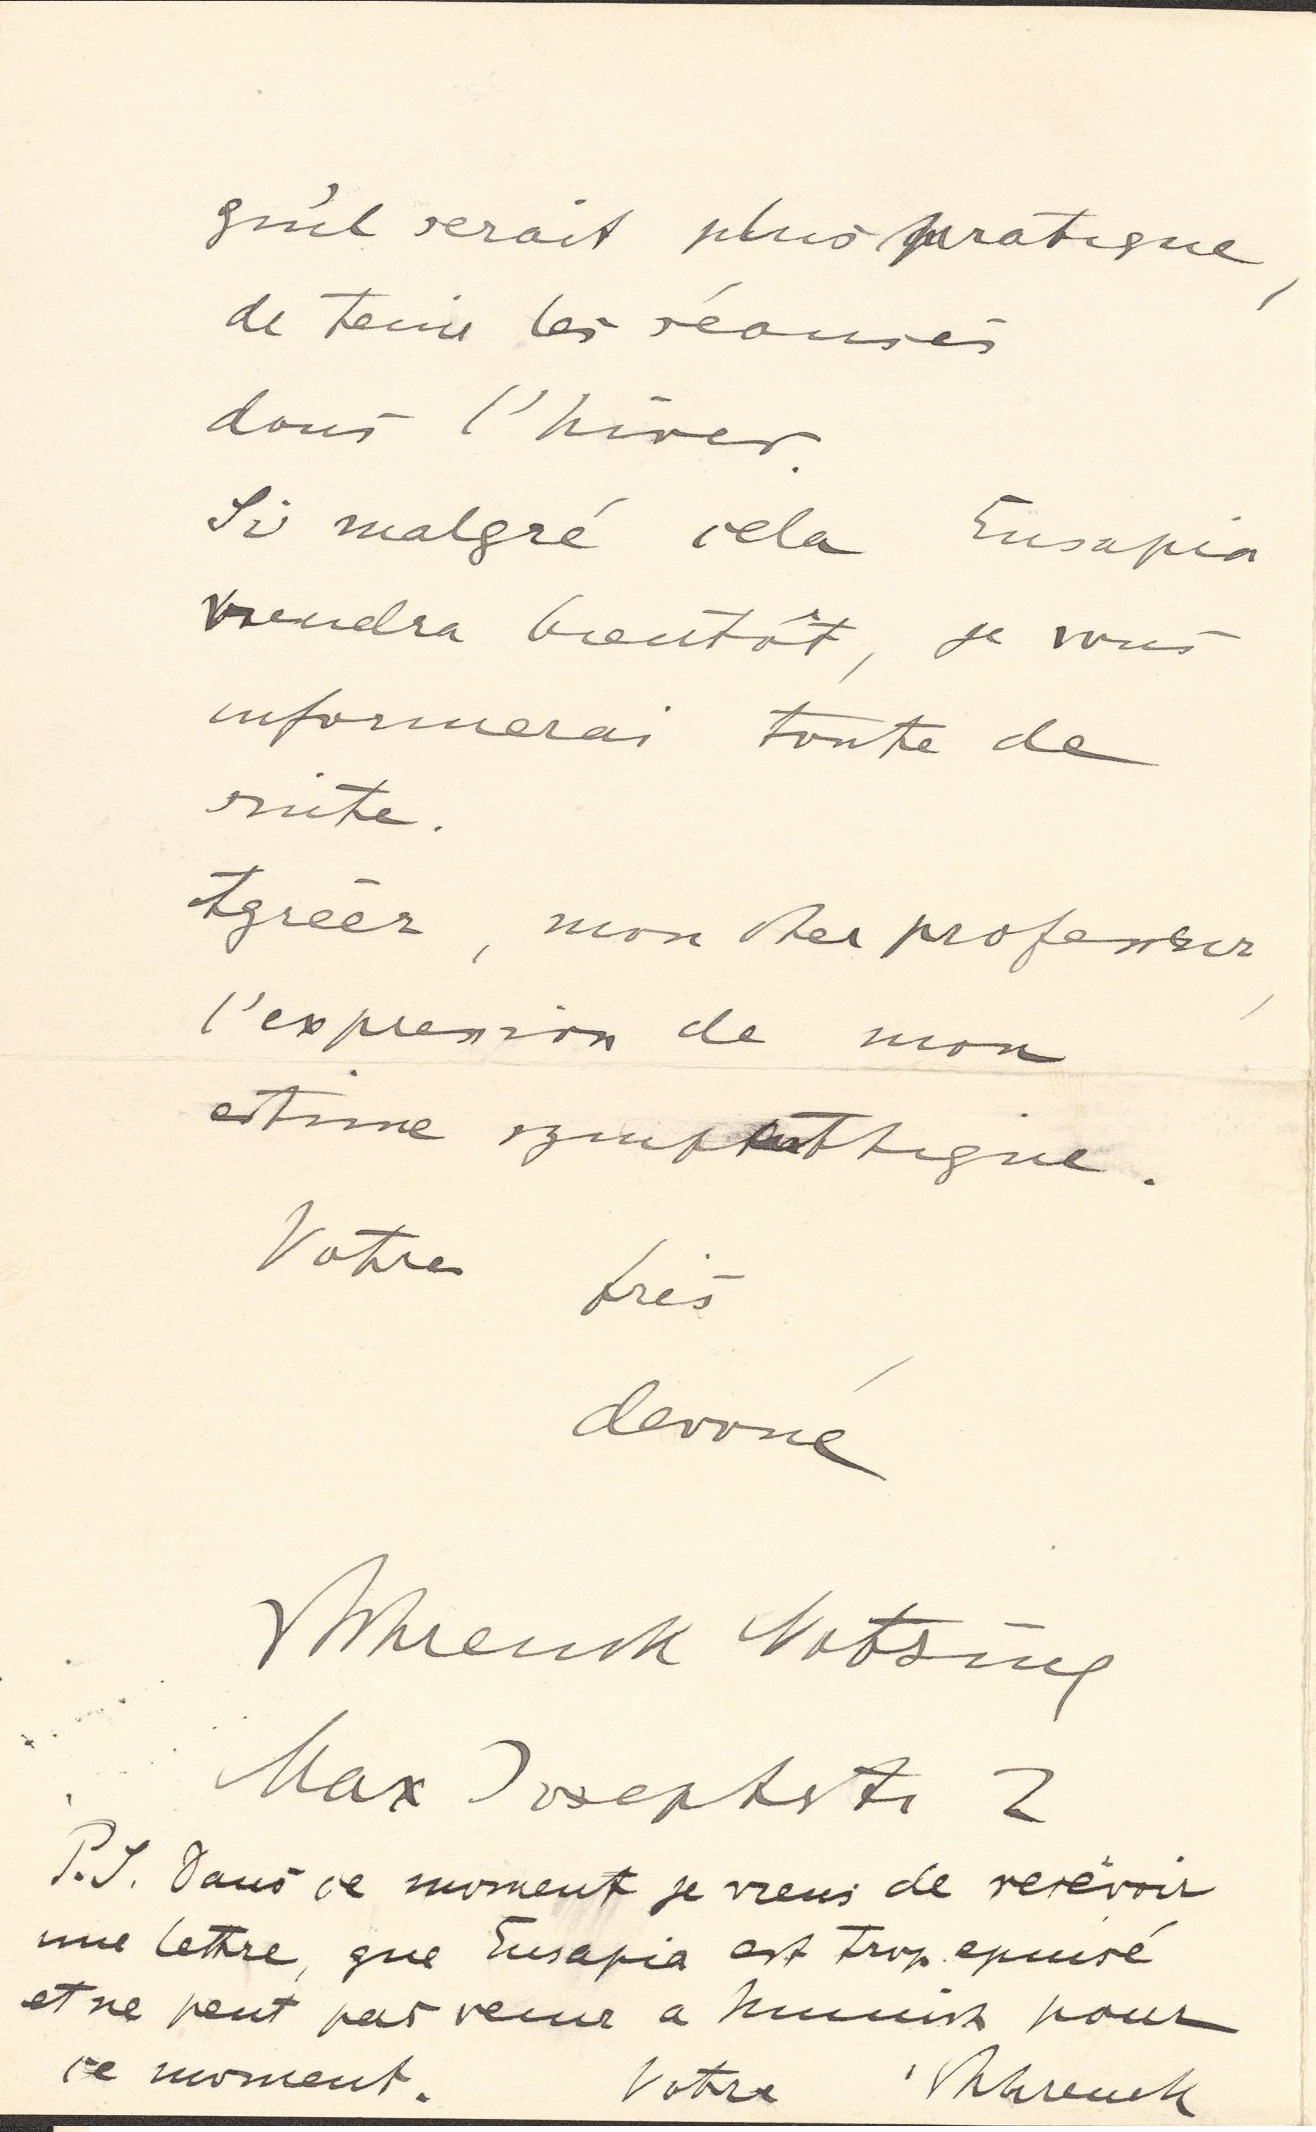 qu'il serait plus pratique,
de tenir les séances
dans l'hiver.
Si malgré cela Eusapia
viendra bientôt, je vous
informerai toute de
suite.
Agréer, mon cher professeur,
l'expression de mon
estime sympathique.
Votre très
devoué
Schrenck Notzing
Max Josephstr. 2
P.S. Dans ce moment je viens de recevoir
une lettre, que Eusapia est trop epuisé
et ne peut pas venir a Munich pour
ce moment. Votre Schrenck